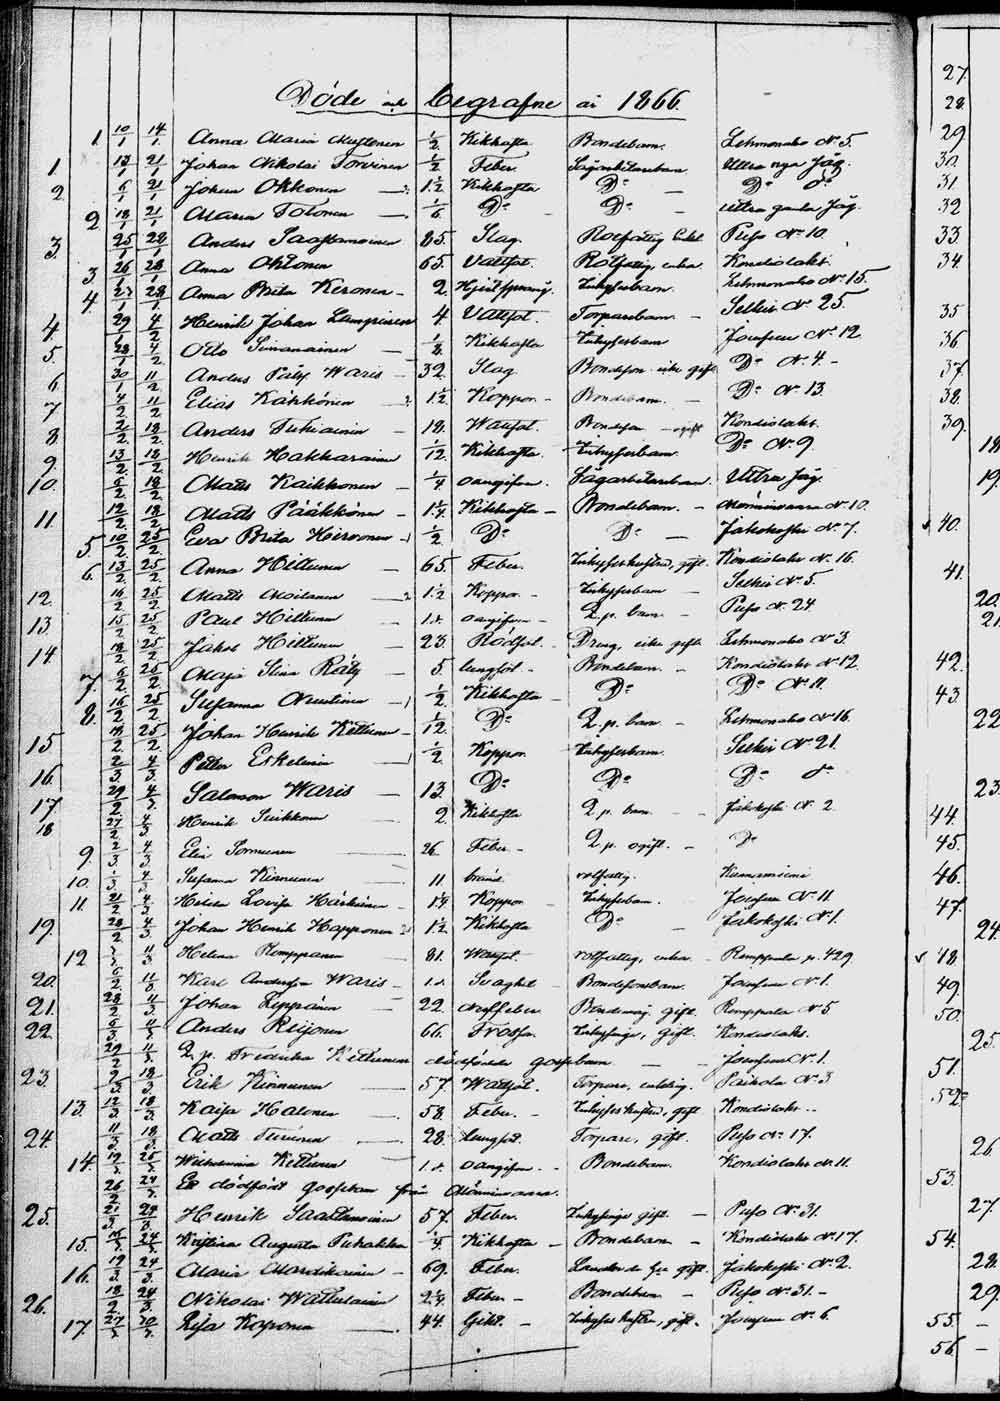 Döde och begrafne år 1866.
1. 10/1 14/1 Anna Maria Mustonen 1/2 Kikhosta Bondebarn. Lehmonaho No 5.
1. 13/1 21/1 Johan Nikolai Torvinen 1/2 Feber. Sågarbetarebarn Uttra nya Såg.
2. 6/1 21/1 Johan Okkonen 1 1/2 Kikhosta Do Do do
2 18/1 21/1 Maria Tolonen 1/6 Do Do Uttra gamla Såg.
3. 25/1 28/1 Anders Saastamoinen 85. Slag. Rotfattig Enkl. Puso No 10
3. 26/1 28/1 Anna Okkonen 65. Vattsot. Rotfattig, enka. Kondiolaks.
4. 27/1 28/1 Anna Brita Keronen 2. Inhysesbarn. Lehmonaho No 15.
4. 29/1 4/2 Henrik Johan 4. Vattsot. Torparebarn Selkie No 25.
5. 28/1 4/2 Otto Simanainen 1/8 Kikhosta Inhysesbarn Jouhtenu No 12
6. 30/1 11/2 Anders Waris 32. Slag Bondeson icke gift Do No 4.
7. 4/2 11/2 Elias Kähkönen 1 1/2 Koppor Bondebarn. Do No 13.
8. 2/2 18/2 Anders Tuhiainen 18. Wattsot. Bondeson ogift Kondiolaks.
9. 13/2 18/2 Henrik Hakkarainen 1/12 Kikhosta. Inhysesbarn. Do No 9.
10. 6/2 18/2 Matts Kaikkonen 1/4 oangifven. Sågarbetarebarn. Uttra Såg.
11. 12/2 18/2 Matts Pääkkönen 1 1/4 Kikhosta Bondebarn. Mönninvaara No 10.
5 10/2 25/2 Eva Brita Hirvonen 1/2 Do Do Jakokoski No 7.
6. 13/2 25/2 Anna Hiltunen 65. Feber. Inhyseshustru, gift. Kondiolaks No 16.
12. 16/2 25/2 Matts Moilanen 1 1/2 Koppor. Inhysesbarn Selkie No 5.
13. 15/2 25/2 Paul Hiltunen oangifven Q.p. barn Puso No 24
14. 18/2 25/2 Jakob Hiltunen 23. Rödsot. Dreng, icke gift. Lehmonaho No 3
7. 6/2 25/2 Maja Stina Räty 5 lungsot. Bondebarn. Kondiolaks No 12
8. 16/2 25/2 Susanna Nuutinen 1/2 Kikhosta Do Do No 11.
15 25/2 Johan Henrik Kettunen 1/12 Do Q.p. barn Lehmonaho No 16.
16. 2/3 4/3 Petter Eskelinen 1/2 Koppor. Inhysesbarn. Selkie No 21.
17 29/2 4/3 Salomon Waris 13. Do Do Do do
18 27/2 4/3 Henrik Suikkonen 2 Kikhosta Q.p. barn Jakokoski No 2
9. 2/3 4/3 Elin Sormunen 26 Feber Q.p. ogift Do
10. 1/3 4/3 Susanna Kinnunen 11. rotfattig.
11. 21/2 4/3 Helena Lovisa Härkönen Koppor Inhysesbarn. Jouhtenu No 11
19. 28/2 4/3 Johan Henrik Happonen 1 1/2 Kikhosta Do Jakokoski No 1.
12 11/3 Helena Romppanen 81. Wattsot. rotfattig, enka. Romppala p. 429.
20. 6/2 11/3 Karl Andersson Waris Svaghet Bondesonsbarn. Jouhtenu No 1.
21. 28/2 11/3 Johan Leppänen 22 Nervfeber. Bondemåg, gift. Romppala No 5
22. 6/3 11/3 Anders Reijonen 66. Frossa. Inhysinge, gift. Kondiolaks.
29/2 11/3 Q.p. Fredrika Kettunen dödfödda gossebarn Jouhtenu No 1.
23. 9/3 18/3 Erik Kinnunen 57. Wattsot. Torpare, enkling. Paihola No 3
13. 12/3 18/3 Kaisa Halonen 58. Feber. Inhyseshustru, gift Kondiolaks
24. 11/3 18/3 Matts Turunen 28. Lungsot. Torpare, gift. Puso No 17.
14. 19/3 25/3 Wilhelmina Kettunen oangifven. Bondebarn. Kondiolaks No 11.
26/2 24/3 Ett dödfödt gossebarn från Mönninvaara.
25. 21/3 24/3 Henrik Saastamoinen 57. Feber. Inhysinge gift Puso No 31.
15. 24/3 Kristina Augusta Puhakka 1/4 Kikhosta Bondebarn Kondiolaks No 17.
16. 19/3 24/3 Maria Mardikainen 69. Feber. gift. Jakokoski No 2.
26. 18/2 24/3 Nikolai Wattulainen 2 1/4 Feber Bondebarn Puso No 31.
17. 27/3 30/3 Kaponen 44. Gikt. Inhyseshustru, gift. Jouhtenu No 6.
27.
28.
29
30.
31.
32
33.
34.
35
36
37.
38.
39.
18
19.
40.
41.
20.
21
42.
43
22
23.
44.
45.
46.
47.
24.
48
49
50.
25.
51.
52.
26
53.
27.
54.
28.
29.
55.
56.